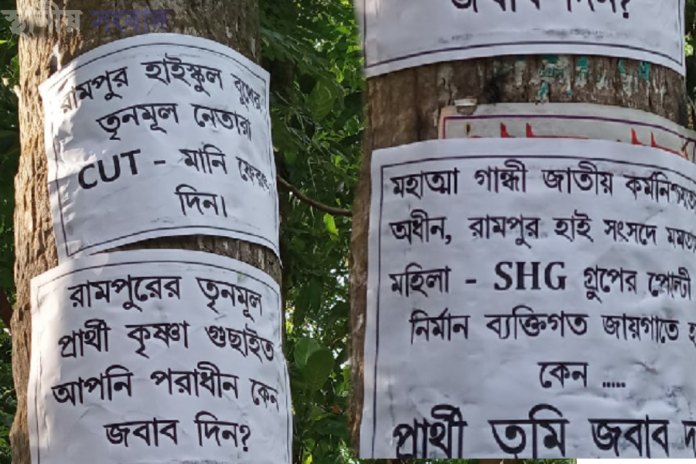 স্থানীয় সংবাদ
রামপুর হাইস্কুল বুথের
তৃনমূল নেতারা
CUT - মানি ফেরৎ
দিন।
রামপুরের তৃনমূল
প্রার্থী কৃষ্ণা গুছাইত
আপনি পরাধীন কেন
জবাব দিন?
জবাব দিন?
মহাত্মা গান্ধী জাতীয়
অধীন, রামপুর হাই সংসদে
মহিলা - SHG গ্রুপের পোল্ট্রী
নির্মান ব্যক্তিগত জায়গাতে
কেন .....
প্রার্থী তুমি জবাব